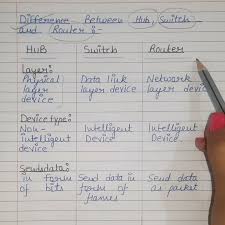 Difference Between Hub, Switch
and Router :-
HUB Switch Router
Layer:
Physical Data link Network
layer layer device layer device
device
Device type:
Non- Intelligent Intelligent
intelligent Device Device
device
Send data:
in form Send data in Send data
of bits form of as packet
frames